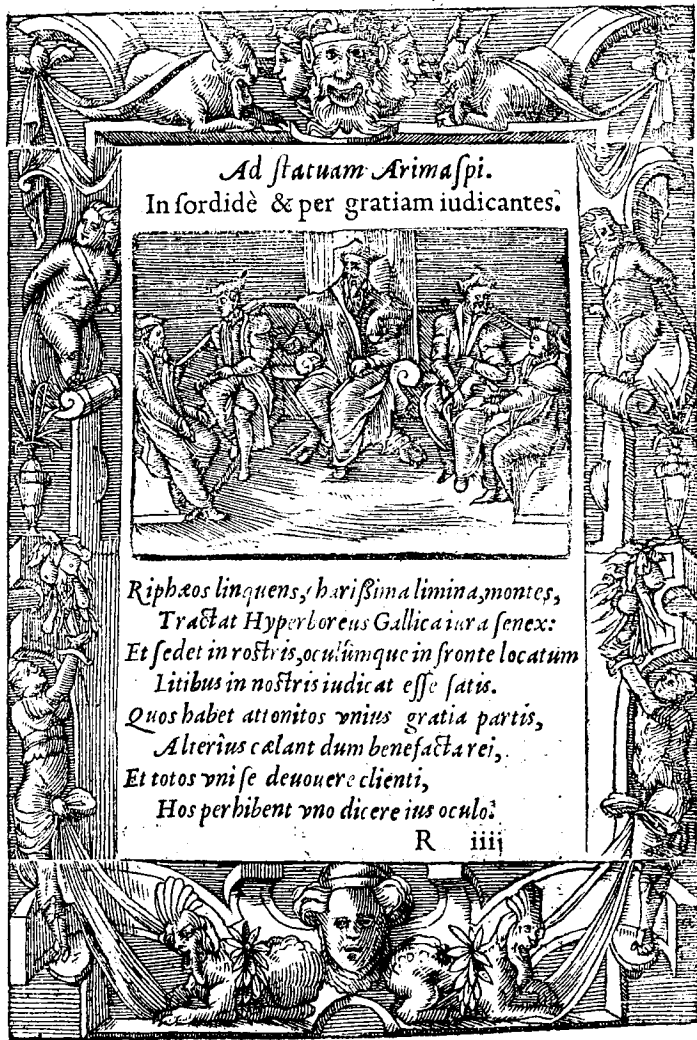 Ad ſtatuam Arimaſpi.
In ſordidè & per gratiam iudicantes.
Riphæos linquens, charißima limina, montes,
Tractat Hyperboreus Gallica iura ſenex:
Et ſedet in roſtris, oculúmque in fronte locatum
Litibus in noſtris iudicat eſſe ſatis.
Quos habet attonitos vnius gratia partis,
Alterius cælant dum benefacta rei,
Et totos vni ſe deuouere clienti,
Hos perhibent vno dicere ius oculo.
R iiij